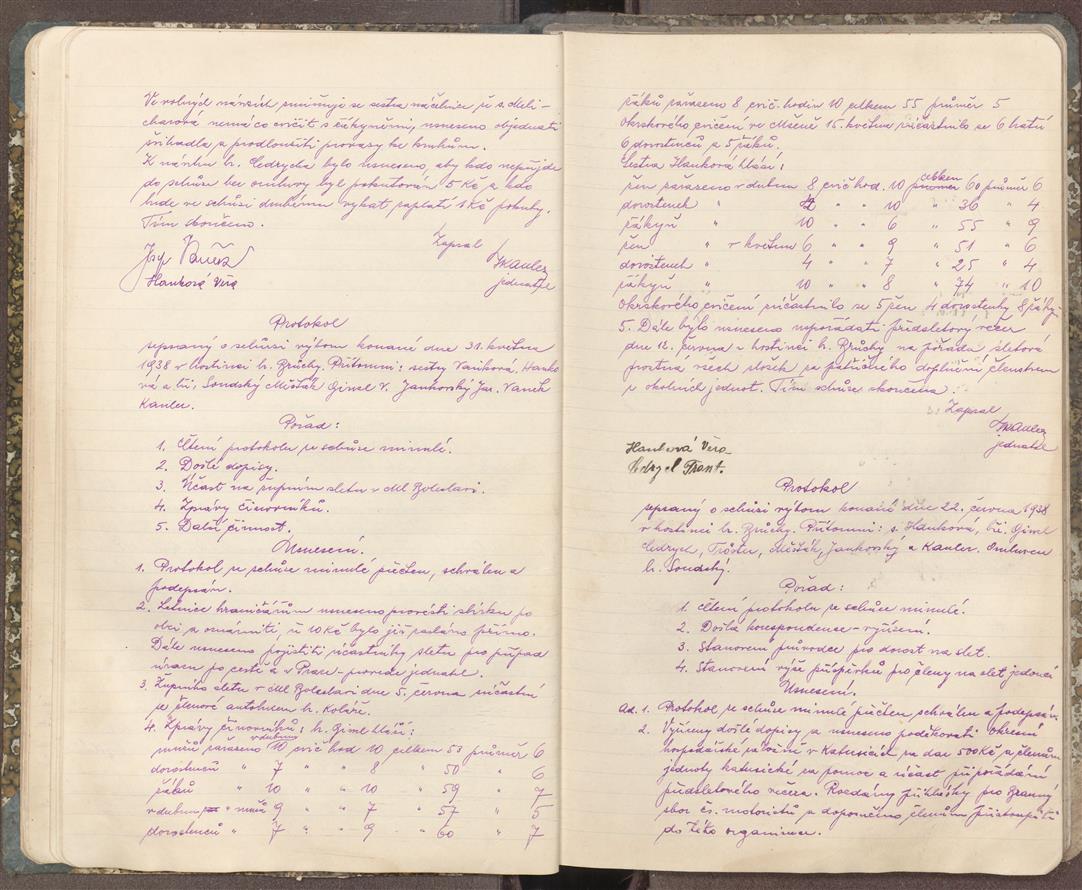 Ve volných návzích zmiňuje se sestra náčelnice, že s. Meli-
charová nemá co cvičit s žákyněmi, usneseno objednati
švihadla a prodloužiti provazy ke kruhům.
K návrhu br. Cedrycha bylo usneseno, aby kdo nepřijde
do schůze bez omluvy byl pokutován 5 Kč a kdo
bude ve schůzi druhému vykat, zaplatí 1 Kč pokuty.
Tím skončeno.
Zapsal
Jos. Vaněk
JKanler
Hanková Věra
jednatel
Protokol
sepsaný o schůzi výboru konané dne 31. května
1938 v hostinci br. Bruchy. Přítomni: sestry Vaňková, Hanko-
vá a bři. Soudský Mišťák Gisel V. Jankovský Jar. Vaněk
Kanler.
Pořad:
1. Čtení protokolu ze schůze minulé.
2. Došlé dopisy.
3. Účast na župním sletu v Ml Boleslavi.
4. Zprávy činovníků.
5. Další činnost.
Usnesení.
1. Protokol ze schůze minulé přečten, schválen a
podepsán.
2. Letnice hraničářům usneseno provésti sbírku po
obci a oznámiti, že 10 Kč bylo již zasláno přímo.
Dále usneseno pojistiti účastníky sletu pro případ
úrazu po cestě a v Praze - provede jednatel.
3. Župního sletu v Ml Boleslavi dne 5. června súčastní
se členové autobusem br. Koláře.
4. Zprávy činovníků: br. Gisel hlásí:
v dubnu
mužů zařaseno 10 cvič hod 10 celkem 53 průměr 6
dorostenců " 7 " " 8 " 50 " 6
žáků " 10 " " 10 " 59 " 7
v květnu " mužů 9 " 7 " 57 " 5
dorostenců " 7 " 9 " 60 " 7
žáků zařaseno 8 cvič. hodin 10 celkem 55 průměr 5
Okrskového cvičení ve Mšeně 15. května zúčastnilo se 6 bratří
6 dorostenců a 5 žáků.
Sestra Hanková hlásí:
celkem
žen zařaseno v dubnu 8 cvič hod. 10 průměr 60 průměr 6
dorostenek " 2 " 10 " 36 " 4
žákyň " 10 " 6 " 55 " 9
žen " v květnu 6 " 9 " 51 " 6
dorostenek " 4 " 7 " 25 " 4
žákyň " 10 " 8 " 74 " 10
Okrskového cvičení zúčastnilo se 5 žen 4 dorostenky 8 žáky-
5. Dále bylo usneseno uspořádati předsletový večer
dne 12. června v hostinci br. Bruchy na pořadu sletová
prostna všech složek za patřičného doplnění členstvem
z okolních jednot. Tím schůze skončena.
Zapsal
JKanler
jednatel
Hanková Věra
Cedrych Frant.
Protokol
sepsaný o schůzi výboru konané dne 22. června 1938
v hostinci br. Bruchy. Přítomni: s. Hanková, bři. Gisel
Cedrych, Trôster, Mišťák, Jankovský a Kanler. Omluven
br. Soudský.
Pořad:
1. Čtení protokolu ze schůze minulé.
2. Došlá korespondence - vyřízení.
3. Stanovení průvodce pro dorost na slet.
4. Stanovení výše příspěvku pro členy na slet jedoucí
Usnesení.
Ad. 1. Protokol ze schůze minulé přečten schválen a podepsán.
2. Vyřízeny došlé dopisy a usneseno poděkovati Okresní
hospodářské záložně v Katusicích za dar 500 Kč a členům
jednoty katusické za pomoc a účast při pořádání
předsletového večera. Rozdány přihlášky pro Branný
sbor čs. motoristů a doporučeno členům přistoupiti
do této organisace.